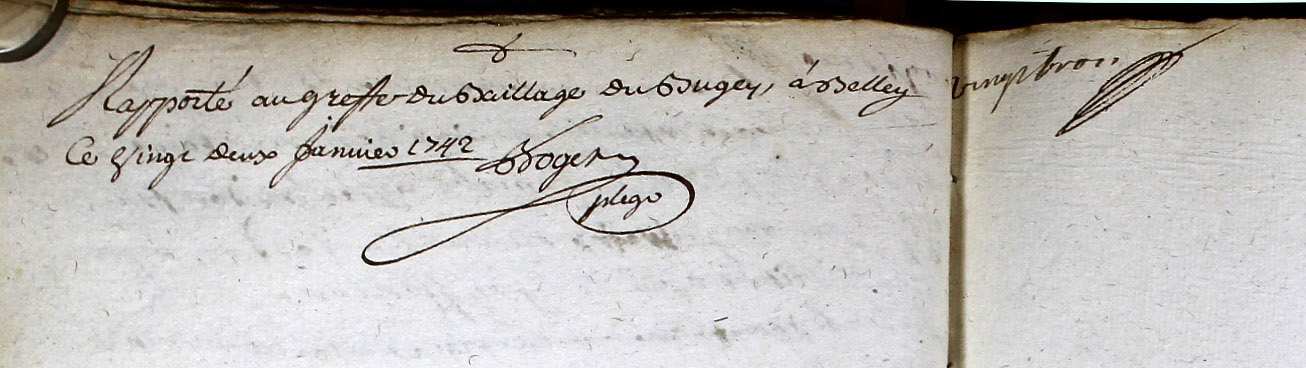 Rapporté au greffe du Baillage du Bugey, à Belley
Ce Vingt deux Janvier 1742 Roger
vingt trois